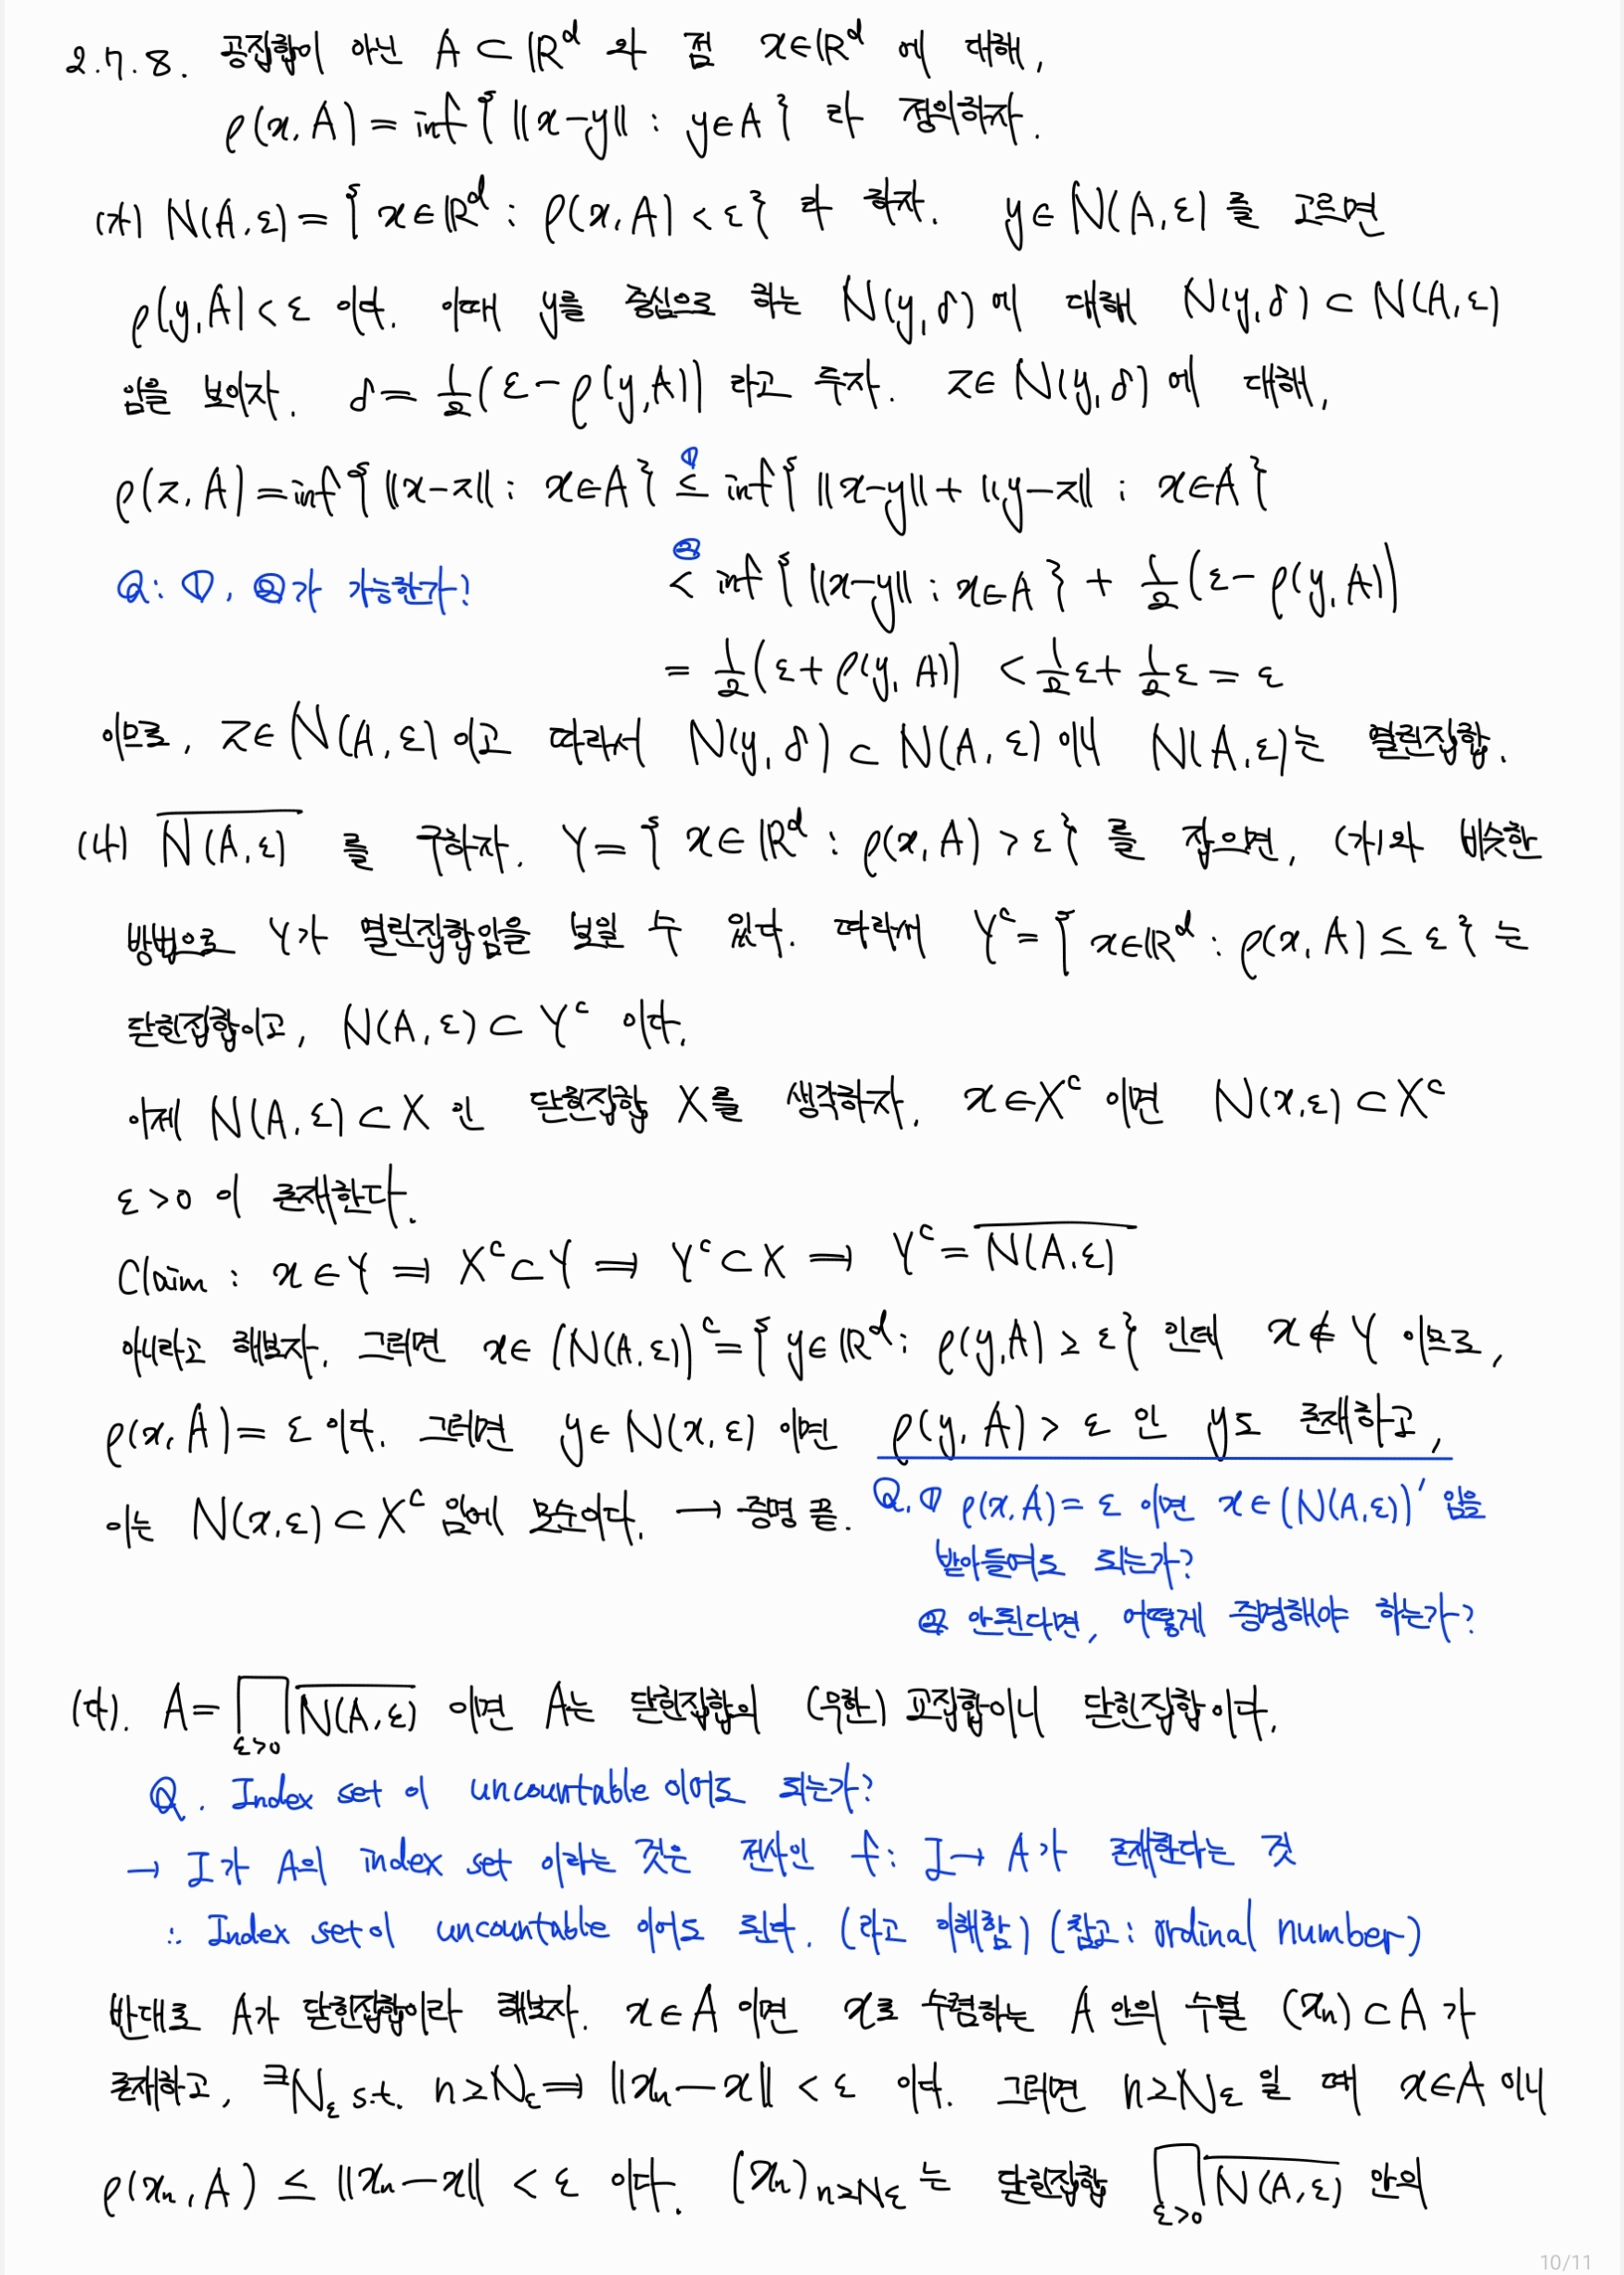 2.7.8. 공집합이 아닌 A ⊂ ℝᵈ 와 점 x∈ℝᵈ 에 대해,
ρ(x, A) = inf{ ||x-y|| : y∈A } 라 정의하자.
(가) N(A, ε) = { x∈ℝᵈ : ρ(x, A) < ε } 라 하자. y∈N(A, ε) 를 고르면
ρ(y, A) < ε 이다. 이때 y를 중심으로 하는 N(y, δ) 에 대해 N(y, δ) ⊂ N(A, ε)
임을 보이자. δ = ½(ε - ρ(y, A)) 라고 두자. z∈N(y, δ) 에 대해,
ρ(z, A) = inf{ ||x-z|| : x∈A } ≤① inf{ ||x-y|| + ||y-z|| : x∈A }
Q: ①, ②가 가능한가? <② inf{ ||x-y|| : x∈A } + ½(ε - ρ(y, A))
= ½(ε + ρ(y, A)) < ½ε + ½ε = ε
이므로, z∈N(A, ε) 이고 따라서 N(y, δ) ⊂ N(A, ε) 이니 N(A, ε)는 열린집합.
(나) \overline{N(A, ε)} 를 구하자. Y = { x∈ℝᵈ : ρ(x, A) > ε } 를 잡으면, (가)와 비슷한
방법으로 Y가 열린집합임을 보일 수 있다. 따라서 Yᶜ = { x∈ℝᵈ : ρ(x, A) ≤ ε } 는
닫힌집합이고, N(A, ε) ⊂ Yᶜ 이다.
이제 N(A, ε) ⊂ X 인 닫힌집합 X를 생각하자. x∈Xᶜ 이면 N(x, ε) ⊂ Xᶜ
ε>0 이 존재한다.
Claim : x∈Y ⟹ Xᶜ⊂Y ⟹ Yᶜ⊂X ⟹ Yᶜ = \overline{N(A, ε)}
아니라고 해보자. 그러면 x∈(N(A, ε))ᶜ = { y∈ℝᵈ : ρ(y, A) ≥ ε } 인데 x∉Y 이므로,
ρ(x, A) = ε 이다. 그러면 y∈N(x, ε) 이면 ρ(y, A) > ε 인 y도 존재하고,
이는 N(x, ε) ⊂ Xᶜ 임에 모순이다. → 증명 끝.
Q. ① ρ(x, A) = ε 이면 x∈(N(A, ε))′ 임을
받아들여도 되는가?
② 안된다면, 어떻게 증명해야 하는가?
(다). A = ∏_{ε>0} \overline{N(A, ε)} 이면 A는 닫힌집합의 (무한) 교집합이니 닫힌집합이다.
Q. Index set 이 uncountable 이어도 되는가?
→ I가 A의 index set 이라는 것은 전사인 f : I → A가 존재한다는 것
∴ Index set이 uncountable 이어도 된다. (라고 이해함) (참고 : ordinal number)
반대로 A가 닫힌집합이라 해보자. x∈A 이면 x로 수렴하는 A 안의 수열 (xₙ) ⊂ A 가
존재하고, ∃N_ε s.t. n≥N_ε ⟹ ||xₙ-x|| < ε 이다. 그러면 n≥N_ε 일 때 x∈A 이니
ρ(xₙ, A) ≤ ||xₙ-x|| < ε 이다. (xₙ)_{n≥N_ε} 는 닫힌집합 ∏_{ε>0} \overline{N(A, ε)} 안의
10/11